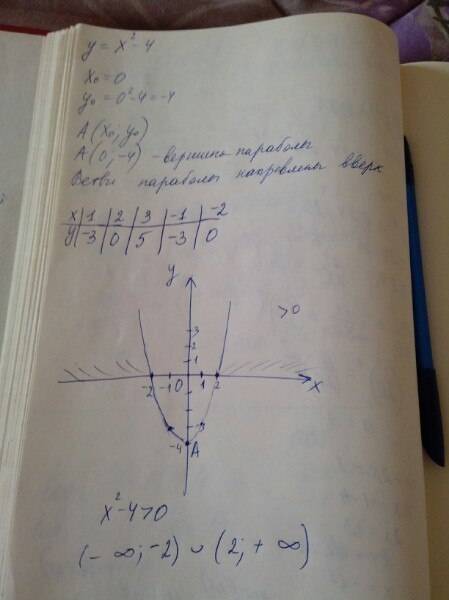 y = x² - 4
x₀ = 0
y₀ = 0² - 4 = -4
A (x₀; y₀)
A (0; -4) - вершина параболы
Ветви параболы направлены вверх
x | 1 | 2 | 3 | -1 | -2
y | -3 | 0 | 5 | -3 | 0
y
> 0
3
2
1
-2 -1 0 1 2 x
-3
-4 A
x² - 4 > 0
(- ∞; -2) ∪ (2; + ∞)